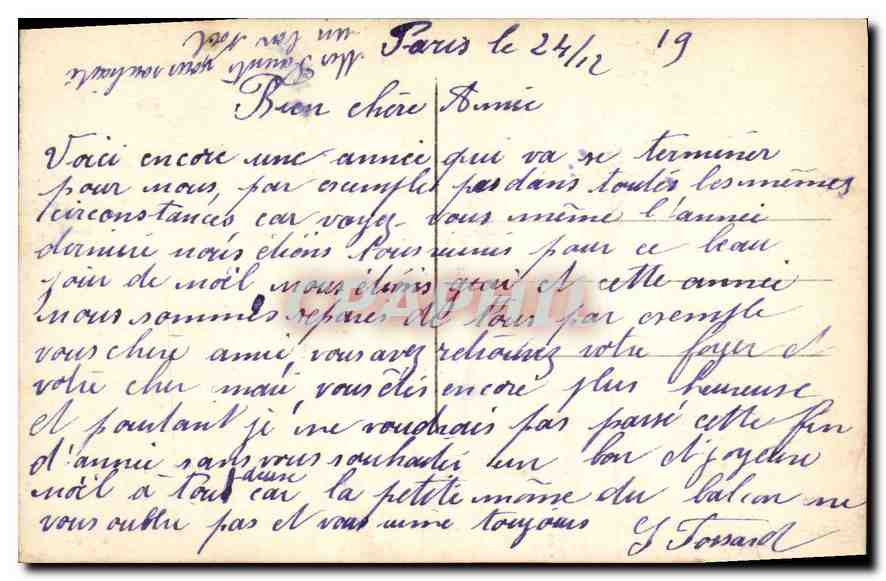 Paris le 24/12 19
Mes Parents vous souhaite
un bon Noël
Bien chère Amie
Voici encore une année qui va se terminer
pour nous, par exemple pas dans toutes les mêmes
circonstances car voyez-vous même l'année
dernière nous étions tous réunis pour ce beau
jour de Noël nous étions gai et cette année
nous sommes séparés de tous par exemple
vous chère amie, vous avez retrouvez votre foyer et
votre cher mari, vous êtes encore plus heureuse
et pourtant je ne voudrais pas passé cette fin
d'année sans vous souhaiter un bon et joyeux
Noël à tous deux car la petite môme du balcon ne
vous oublie pas et vous aime toujours